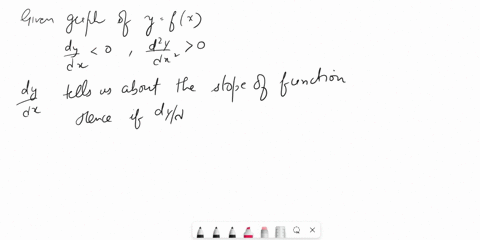 Given graph of y = f(x)
dy/dx < 0 , d²y/dx² > 0
dy/dx tells us about the slope of function
Hence if dy/d